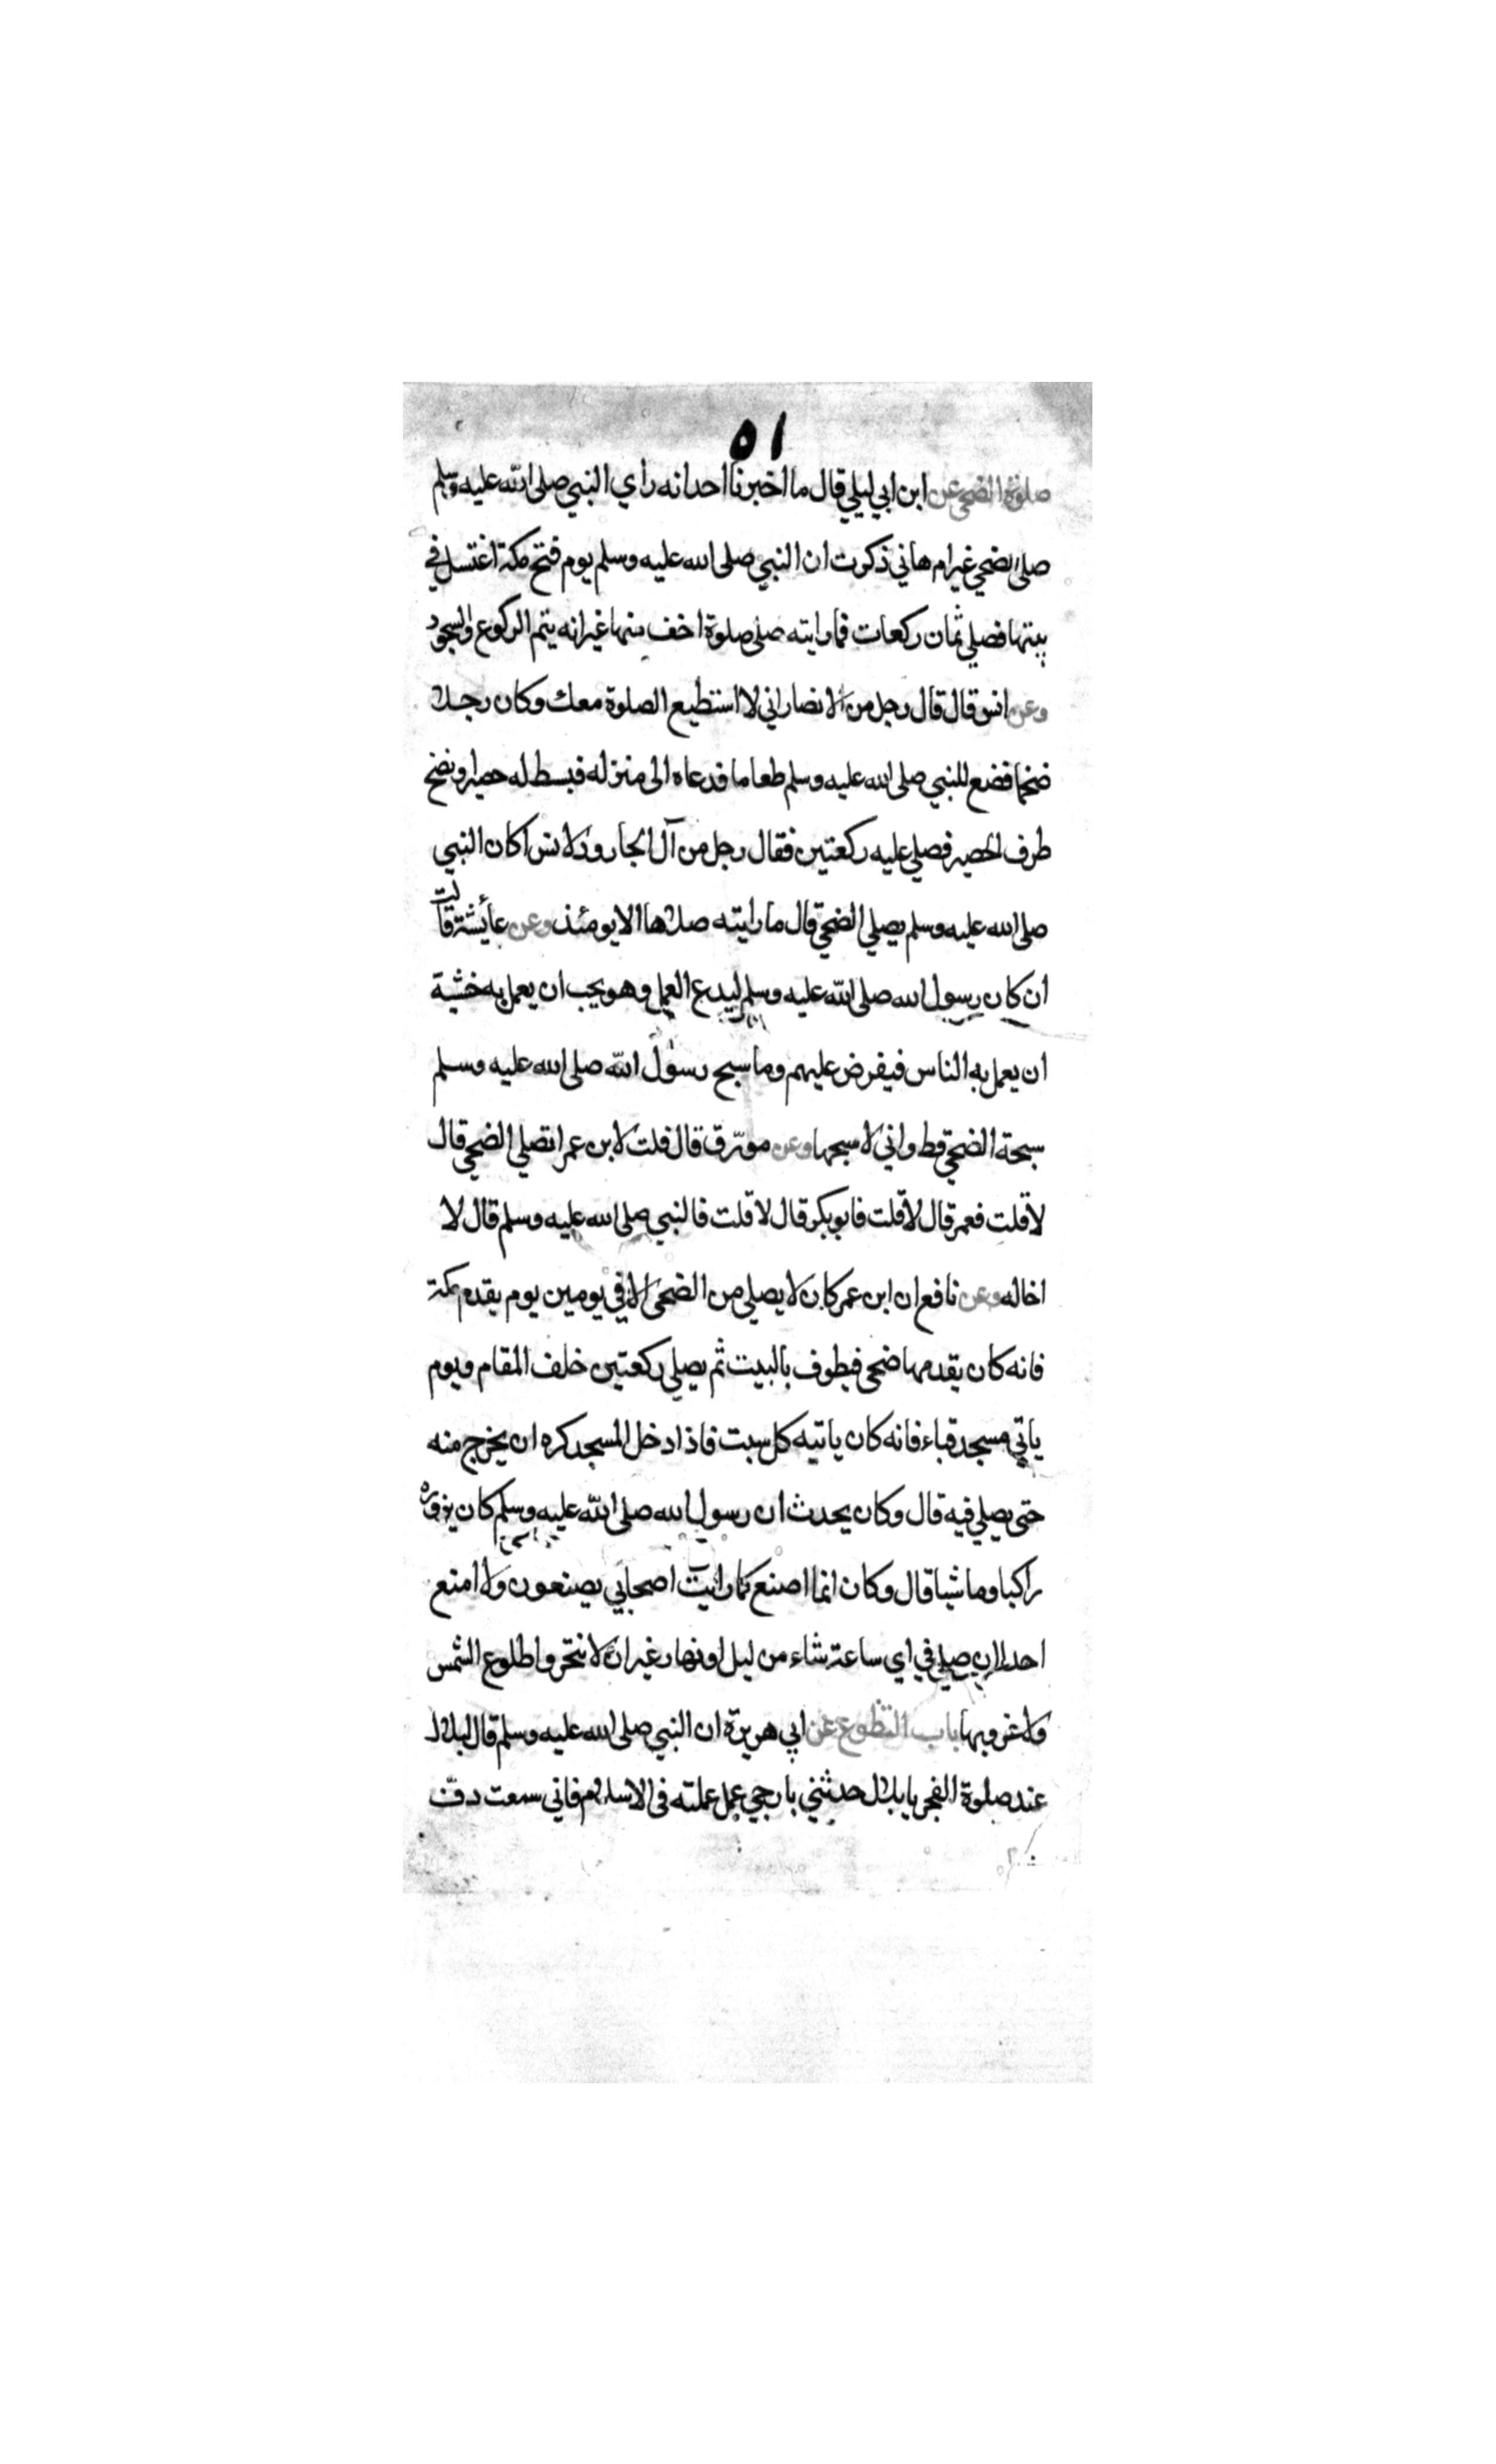 ٥١
صلوة الضحى عن ابن ابي ليلي قال ما اخبرنا احد انه راي النبي صلى الله عليه وسلم
صلى الضحي غير ام هاني ذكرت ان النبي صلى الله عليه وسلم يوم فتح مكة اغتسل في
بيتها فصلي ثمان ركعات فما رايته صلى صلوة اخف منها غير انه يتم الركوع والسجود
وعن انس قال قال رجل من الانصار اني لا استطيع الصلوة معك وكان رجلا
ضخما فصنع للنبي صلى الله عليه وسلم طعاما فدعاه الى منزله فبسط له حصيرا ونضح
طرف الحصير فصلي عليه ركعتين فقال رجل من آل الجارود لانس اكان النبي
صلى الله عليه وسلم يصلي الضحي قال ما رايته صلاها الا يومئذ وعن عائشة قالت
ان كان رسول الله صلى الله عليه وسلم ليدع العمل وهو يحب ان يعمل به خشية
ان يعمل به الناس فيفرض عليهم وما سبح رسول الله صلى الله عليه وسلم
سبحة الضحي قط واني لاسبحها وعن مورّق قال قلت لابن عمر اتصلي الضحي قال
لا قلت فعمر قال لا قلت فابو بكر قال لا قلت فالنبي صلى الله عليه وسلم قال لا
اخاله وعن نافع ان ابن عمر كان لا يصلي من الضحى الا في يومين يوم يقدم مكة
فانه كان يقدمها ضحى فيطوف بالبيت ثم يصلي ركعتين خلف المقام ويوم
ياتي مسجد قباء فانه كان ياتيه كل سبت فاذا دخل المسجد كره ان يخرج منه
حتى يصلي فيه قال وكان يحدث ان رسول الله صلى الله عليه وسلم كان يزوره
راكبا وماشيا قال وكان انما اصنع كما رايت اصحابي يصنعون ولا امنع
احدا ان صلي في اي ساعة شاء من ليل او نهار غير ان لا تتحروا طلوع الشمس
ولا غروبها باب التطوع عن ابي هريرة ان النبي صلى الله عليه وسلم قال لبلال
عند صلوة الفجر يا بلال حدثني بارجي عمل عملته في الاسلام فاني سمعت دفّ